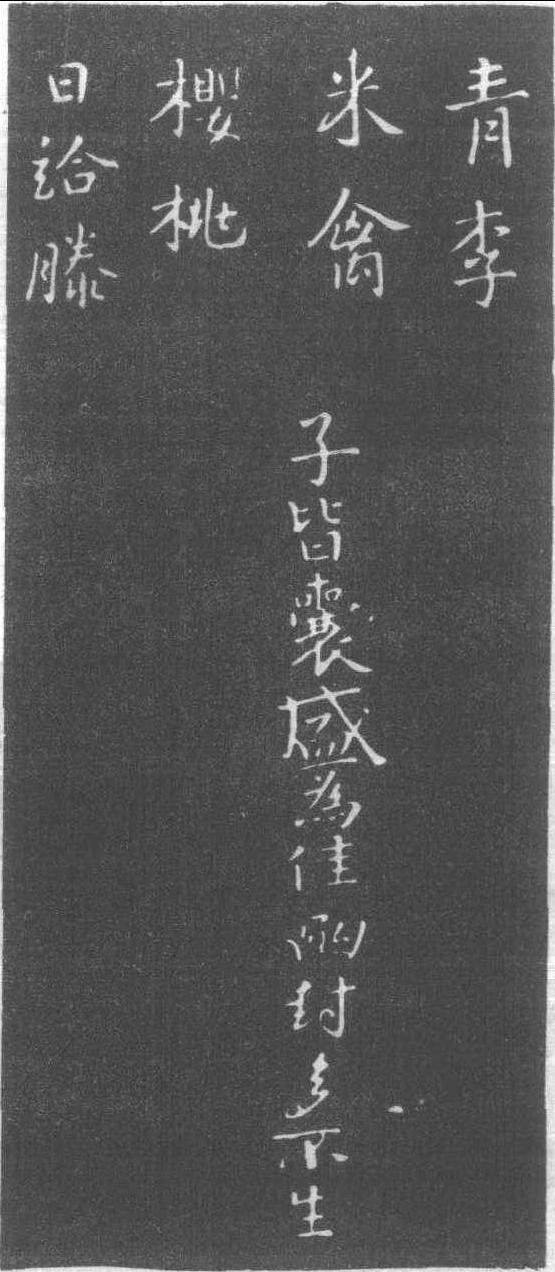 青李
来禽
櫻桃
日給滕
子皆囊盛為佳函封多不生